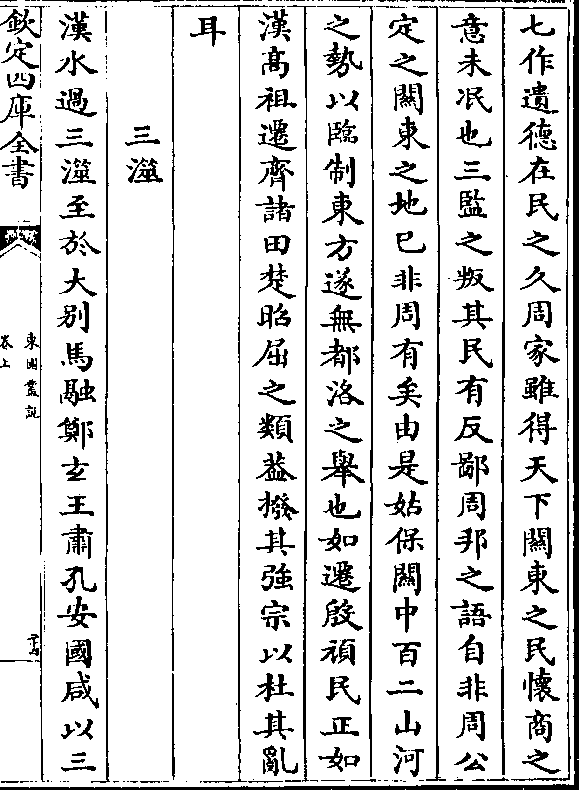 七作遺德在民之久周家雖得天下關東之民懷商之
意未冺也三監之叛其民有反鄙周邦之語自非周公
定之關東之地已非周有矣由是姑保關中百二山河
之勢以臨制東方遂無都洛之舉也如遷殷頑民正如
漢髙祖遷齊諸田楚昭屈之類葢撥其強宗以杜其亂
耳
三澨
漢水過三澨至於大别馬融鄭玄王肅孔安國咸以三
欽定四庫全書
東園叢説
卷上